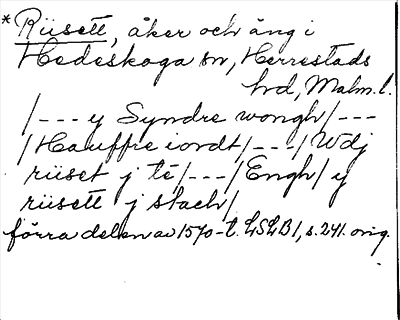 *Rüsett, åker och äng i
Hedeskoga sn, Herrestads
hd, Malm. l.
/--- y Syndre wongh/---
/Hauffre iordt/---/Wdj
rüset j të/---/Engh/y
rüsett j stach/
förra delen av 1570-t. LSLB1, s. 241. orig.